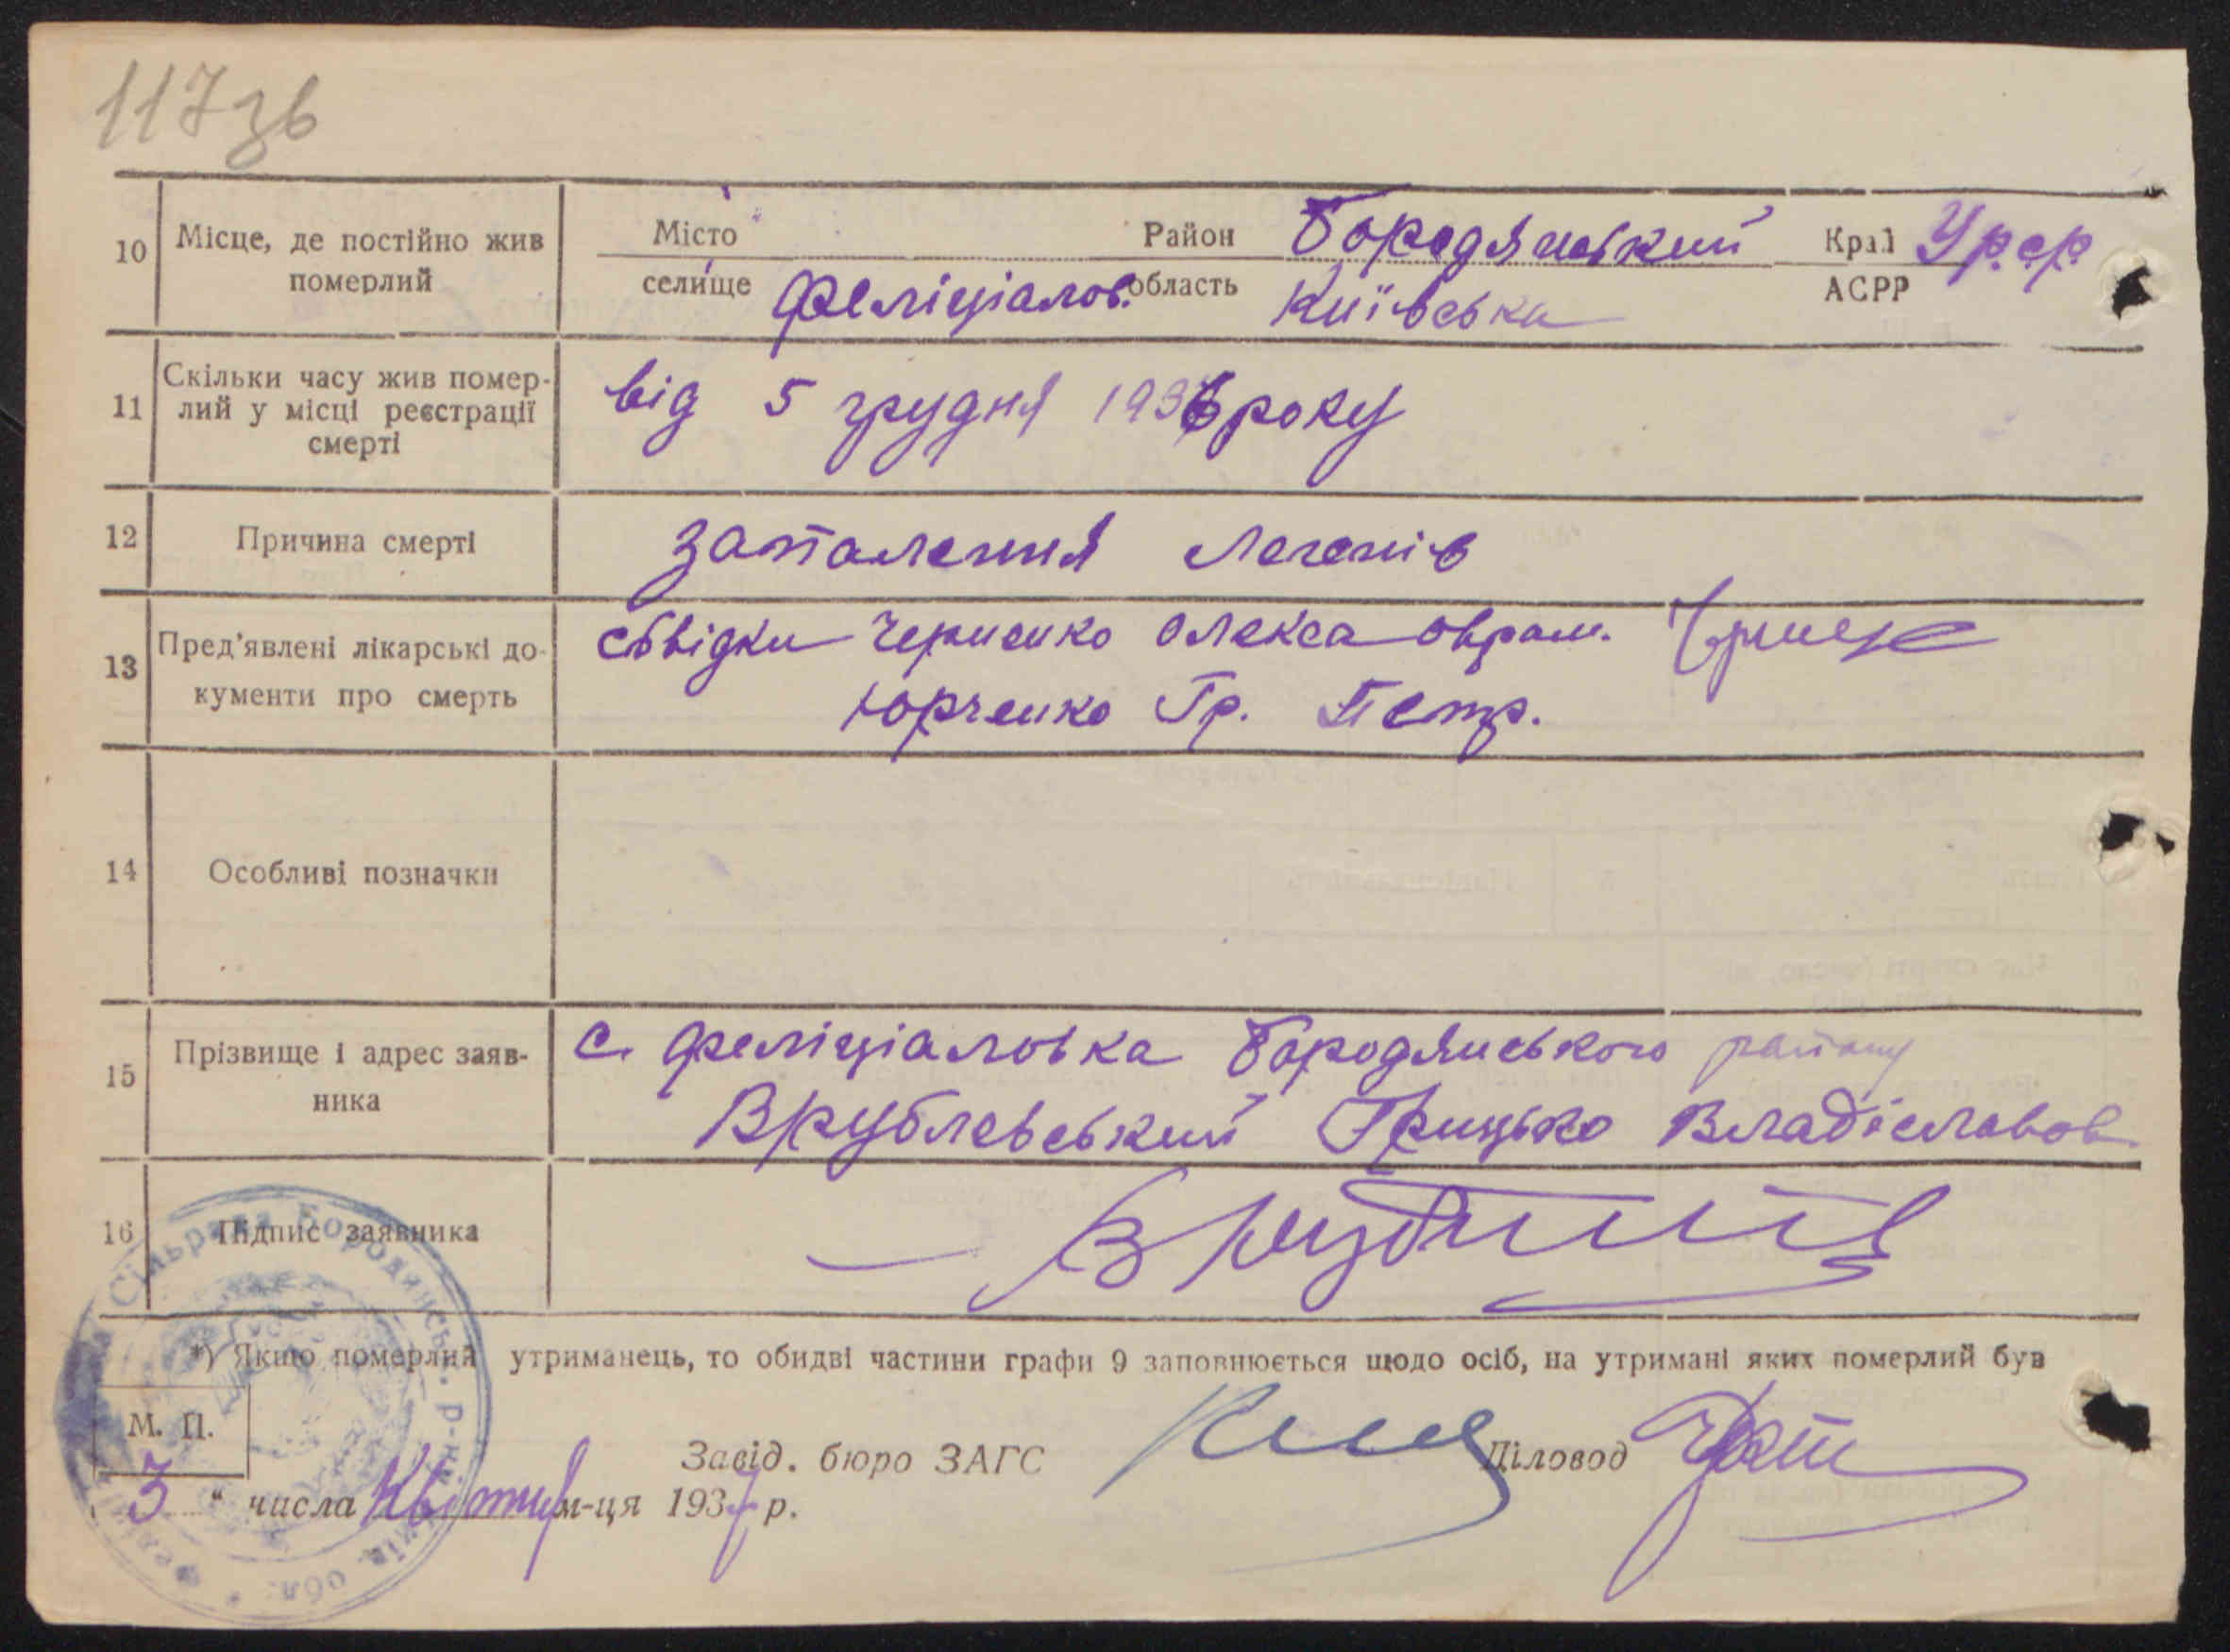 117 зв
10 Місце, де постійно жив померлий
Місто Район Бородянський Край Урср
селище Феліціалов. область Київська АСРР
11 Скільки часу жив помер-
лий у місці реєстрації
смерті
від 5 грудня 1936 року
12 Причина смерті
запалення легенів
13 Пред'явлені лікарські до-
кументи про смерть
свідки Черненко Олекса Оврам.
Юрченко Гр. Петр.
14 Особливі позначки
15 Прізвище і адрес заяв-
ника
с. Феліціаловка Бородянського району
Врублевський Грицько Владіславов
16 Підпис заявника
*) Якщо померлий утриманець, то обидві частини графи 9 заповнюється щодо осіб, на утримані яких померлий був
М. П.
Завід. бюро ЗАГС Діловод
3 " числа Квітня м-ця 1937 р.
Сільрада Бородянськ. р-ну Київ. обл.